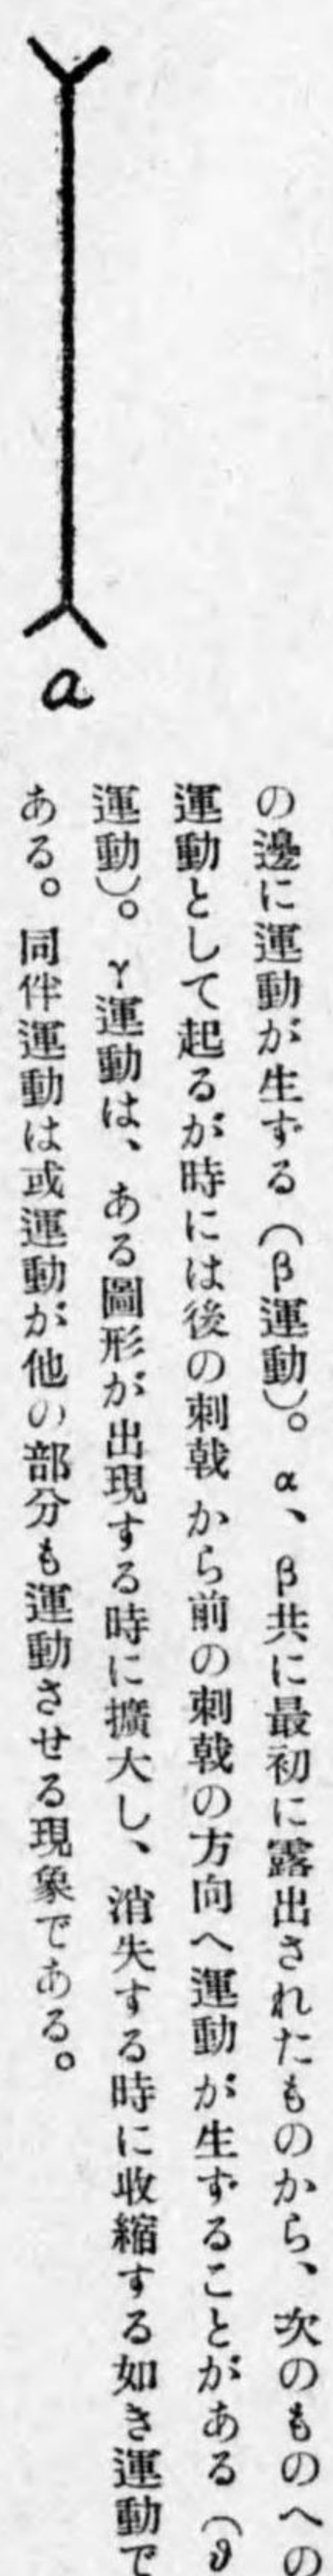 の邊に運動が生ずる（β運動）。α、β共に最初に露出されたものから、次のものへの
運動として起るが時には後の刺戟から前の刺戟の方向へ運動が生ずることがある（δ
運動）。γ運動は、ある圖形が出現する時に擴大し、消失する時に收縮する如き運動で
ある。同伴運動は或運動が他の部分も運動させる現象である。
a